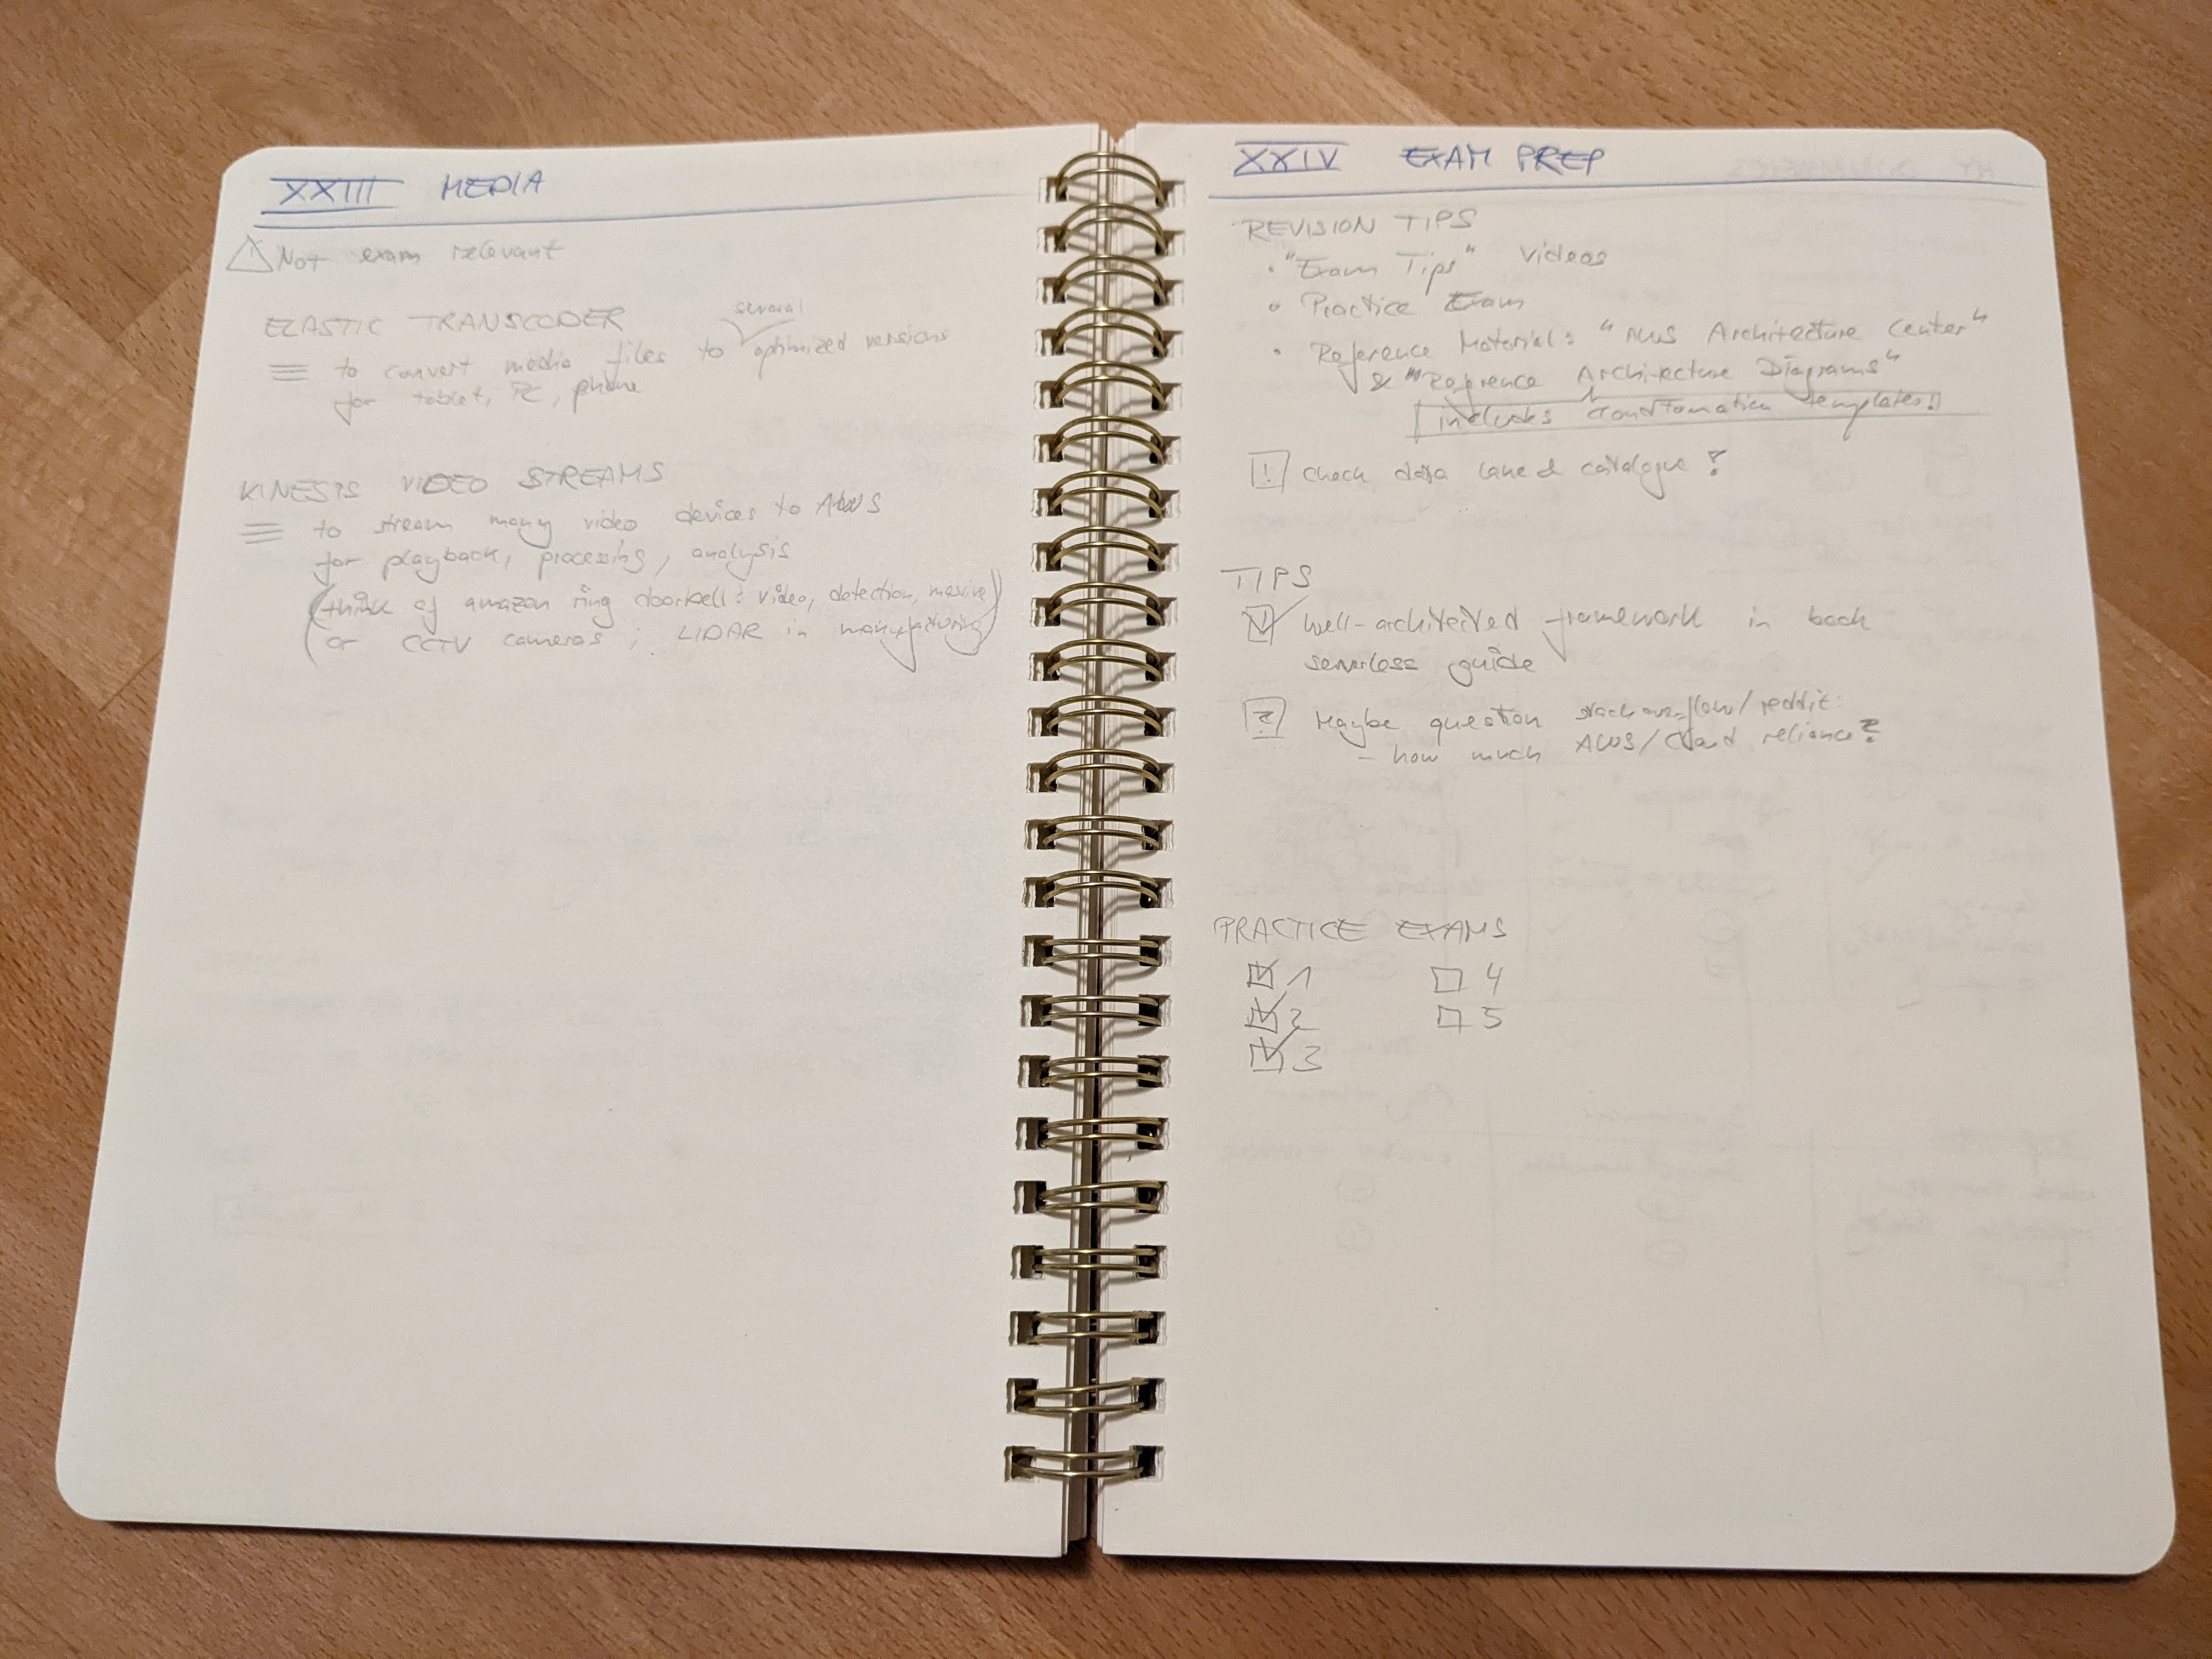 XXIII MEDIA
Not exam relevant
ELASTIC TRANSCODER
several
to convert media files to optimized versions
for tablet, PC, phone
KINESIS VIDEO STREAMS
to stream many video devices to AWS
for playback, processing, analysis
(think of amazon ring doorbell: video, detection, massive
or CCTV cameras; LIDAR in manufacturing)
XXIV EXAM PREP
REVISION TIPS
• "Exam Tips" videos
• Practice Exam
• Reference Material: "AWS Architecture Center"
& "Refrence Architecture Diagrams"
includes cloudformation templates!
! check data catalogue?
TIPS
well-architected framework in book
serverless guide
? Maybe question stackoverflow/reddit:
- how much AWS/Cloud reliance?
PRACTICE EXAMS
1
4
2
5
3